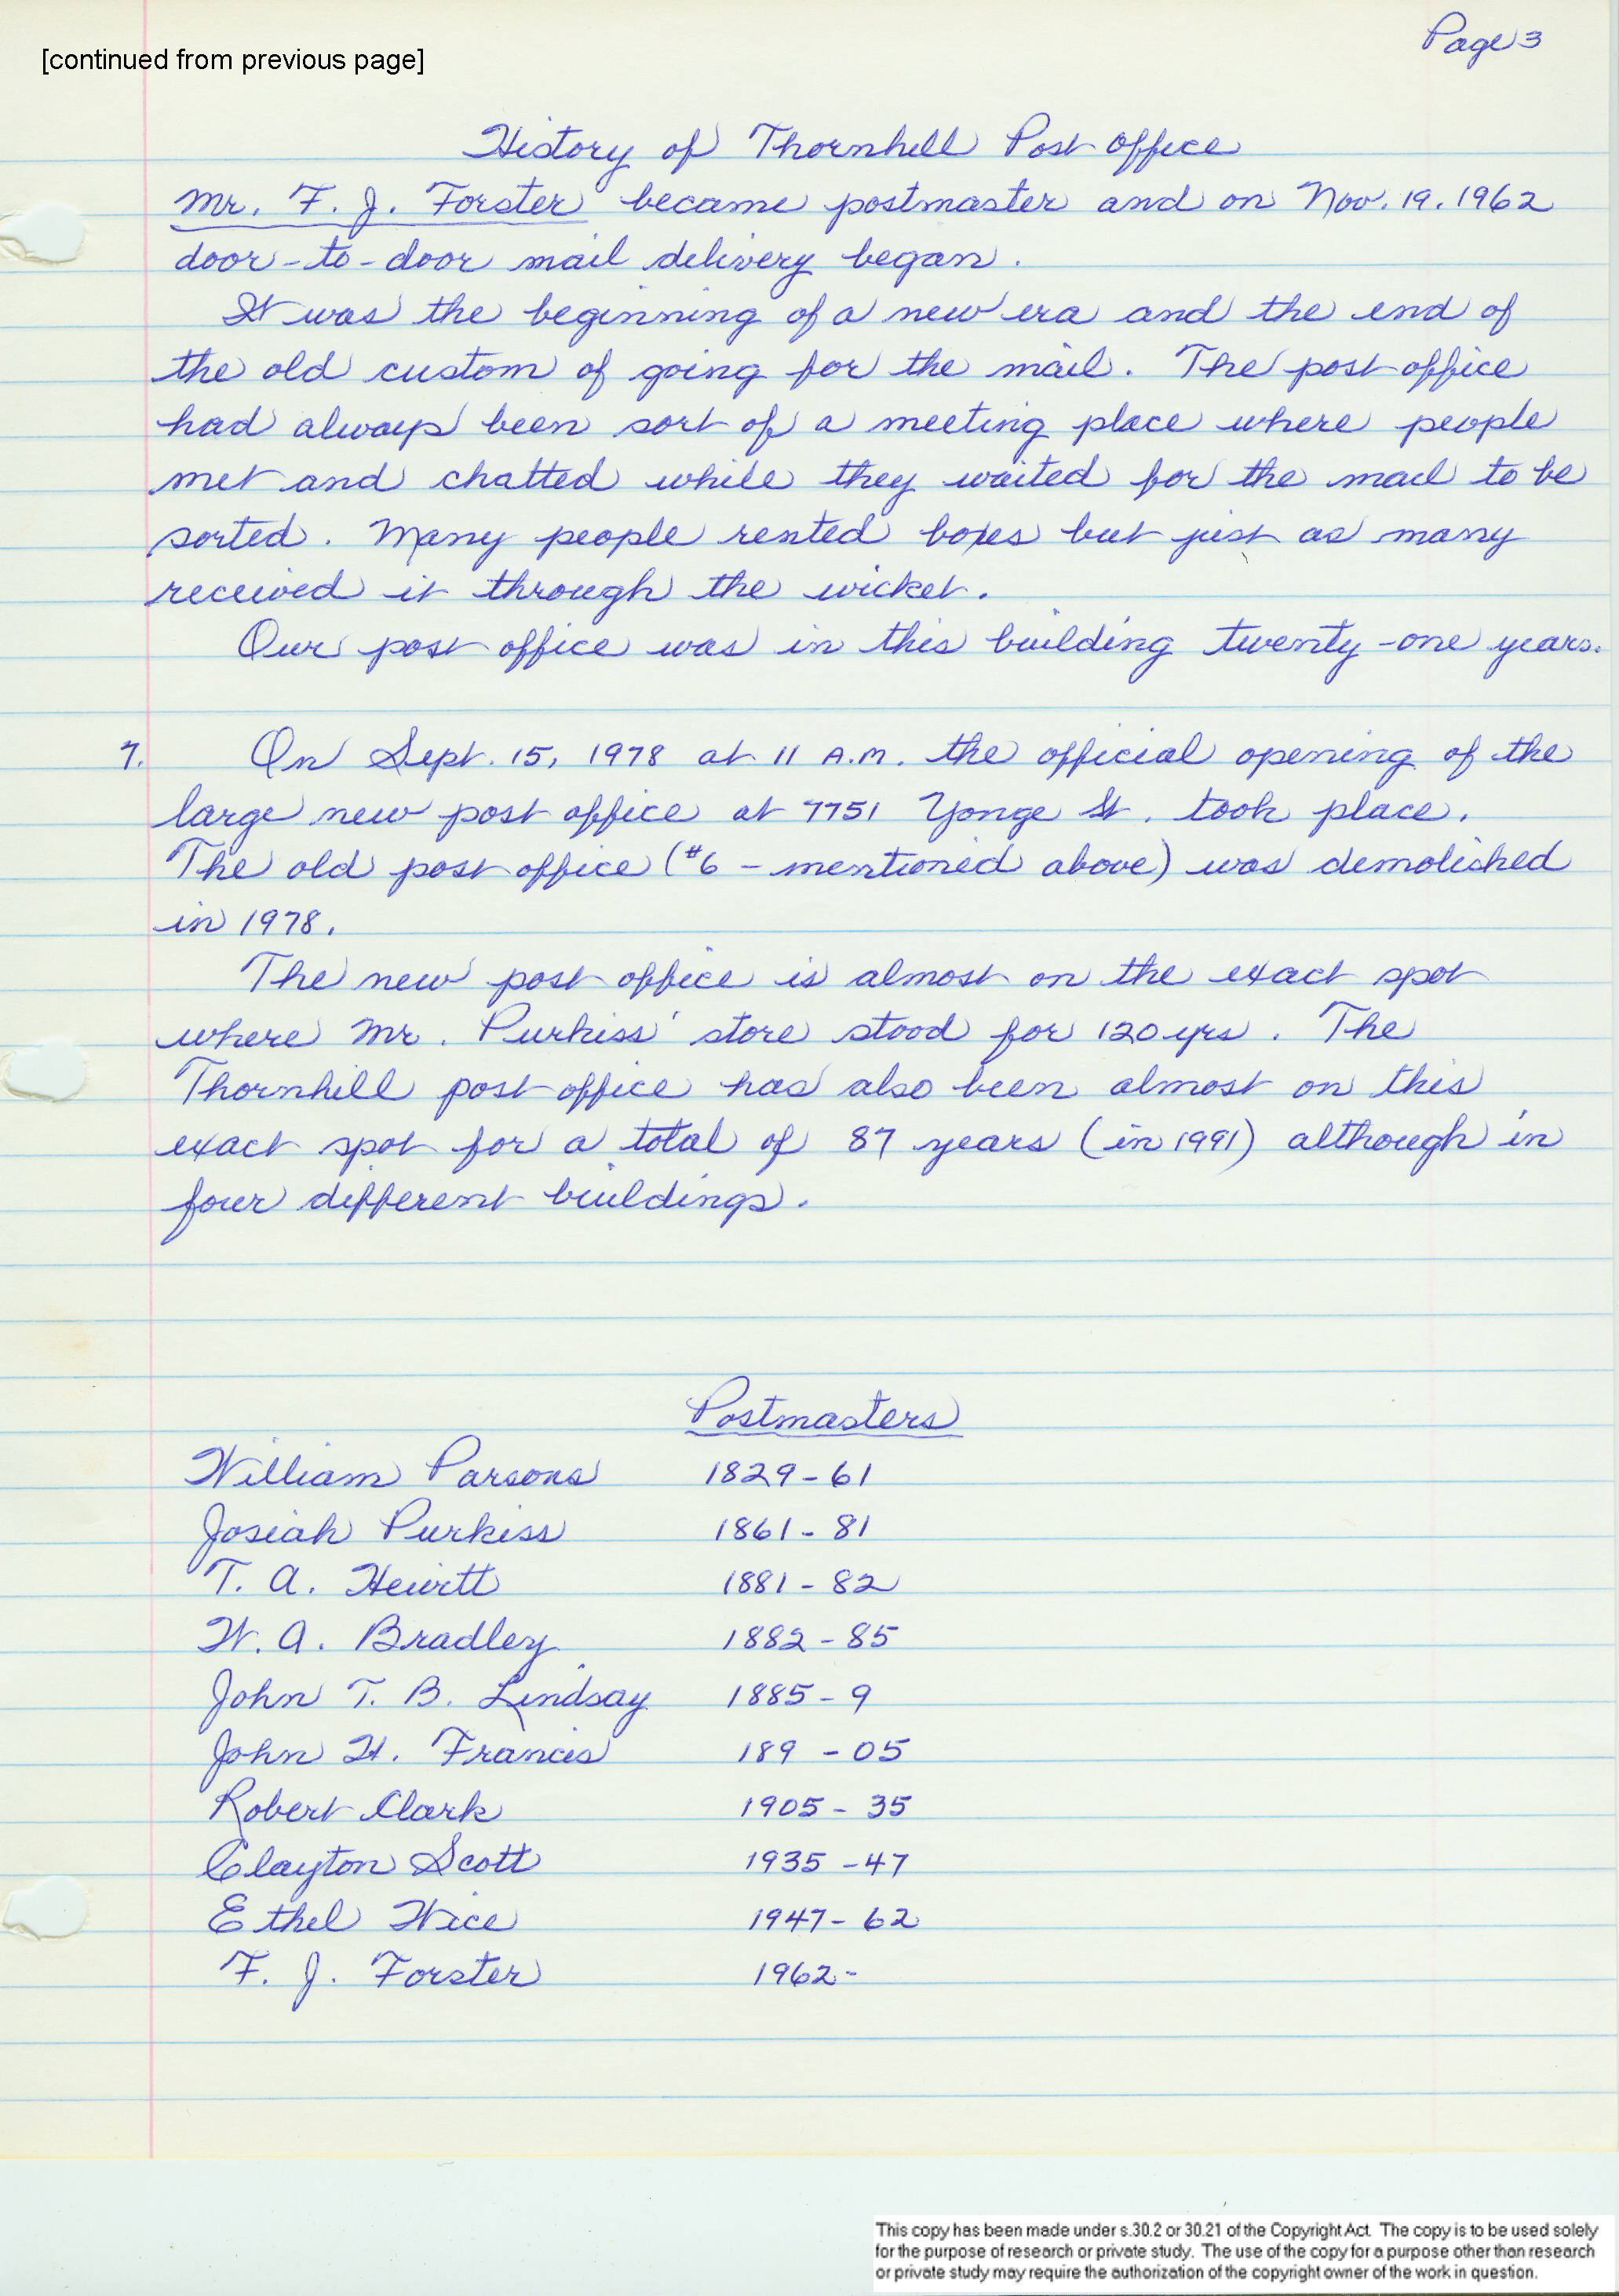 Page 3
[continued from previous page]
History of Thornhill Post Office
Mr. F. J. Forster became postmaster and on Nov. 19. 1962
door-to-door mail delivery began.
It was the beginning of a new era and the end of
the old custom of going for the mail. The post office
had always been sort of a meeting place where people
met and chatted while they waited for the mail to be
sorted. Many people rented boxes but just as many
received it through the wicket.
Our post office was in this building twenty-one years.
7. On Sept. 15, 1978 at 11 A.M. the official opening of the
large new post office at 7751 Yonge St. took place.
The old post office (#6 - mentioned above) was demolished
in 1978.
The new post office is almost on the exact spot
where Mr. Purkiss' store stood for 120 yrs. The
Thornhill post office has also been almost on this
exact spot for a total of 87 years (in 1991) although in
four different buildings.
Postmasters
William Parsons 1829-61
Josiah Purkiss 1861-81
T. A. Hewitt 1881-82
W. A. Bradley 1882-85
John T. B. Lindsay 1885-9
John H. Francis 189 -05
Robert Clark 1905-35
Clayton Scott 1935-47
Ethel Wice 1947-62
F. J. Forster 1962-
This copy has been made under s.30.2 or 30.21 of the Copyright Act. The copy is to be used solely
for the purpose of research or private study. The use of the copy for a purpose other than research
or private study may require the authorization of the copyright owner of the work in question.